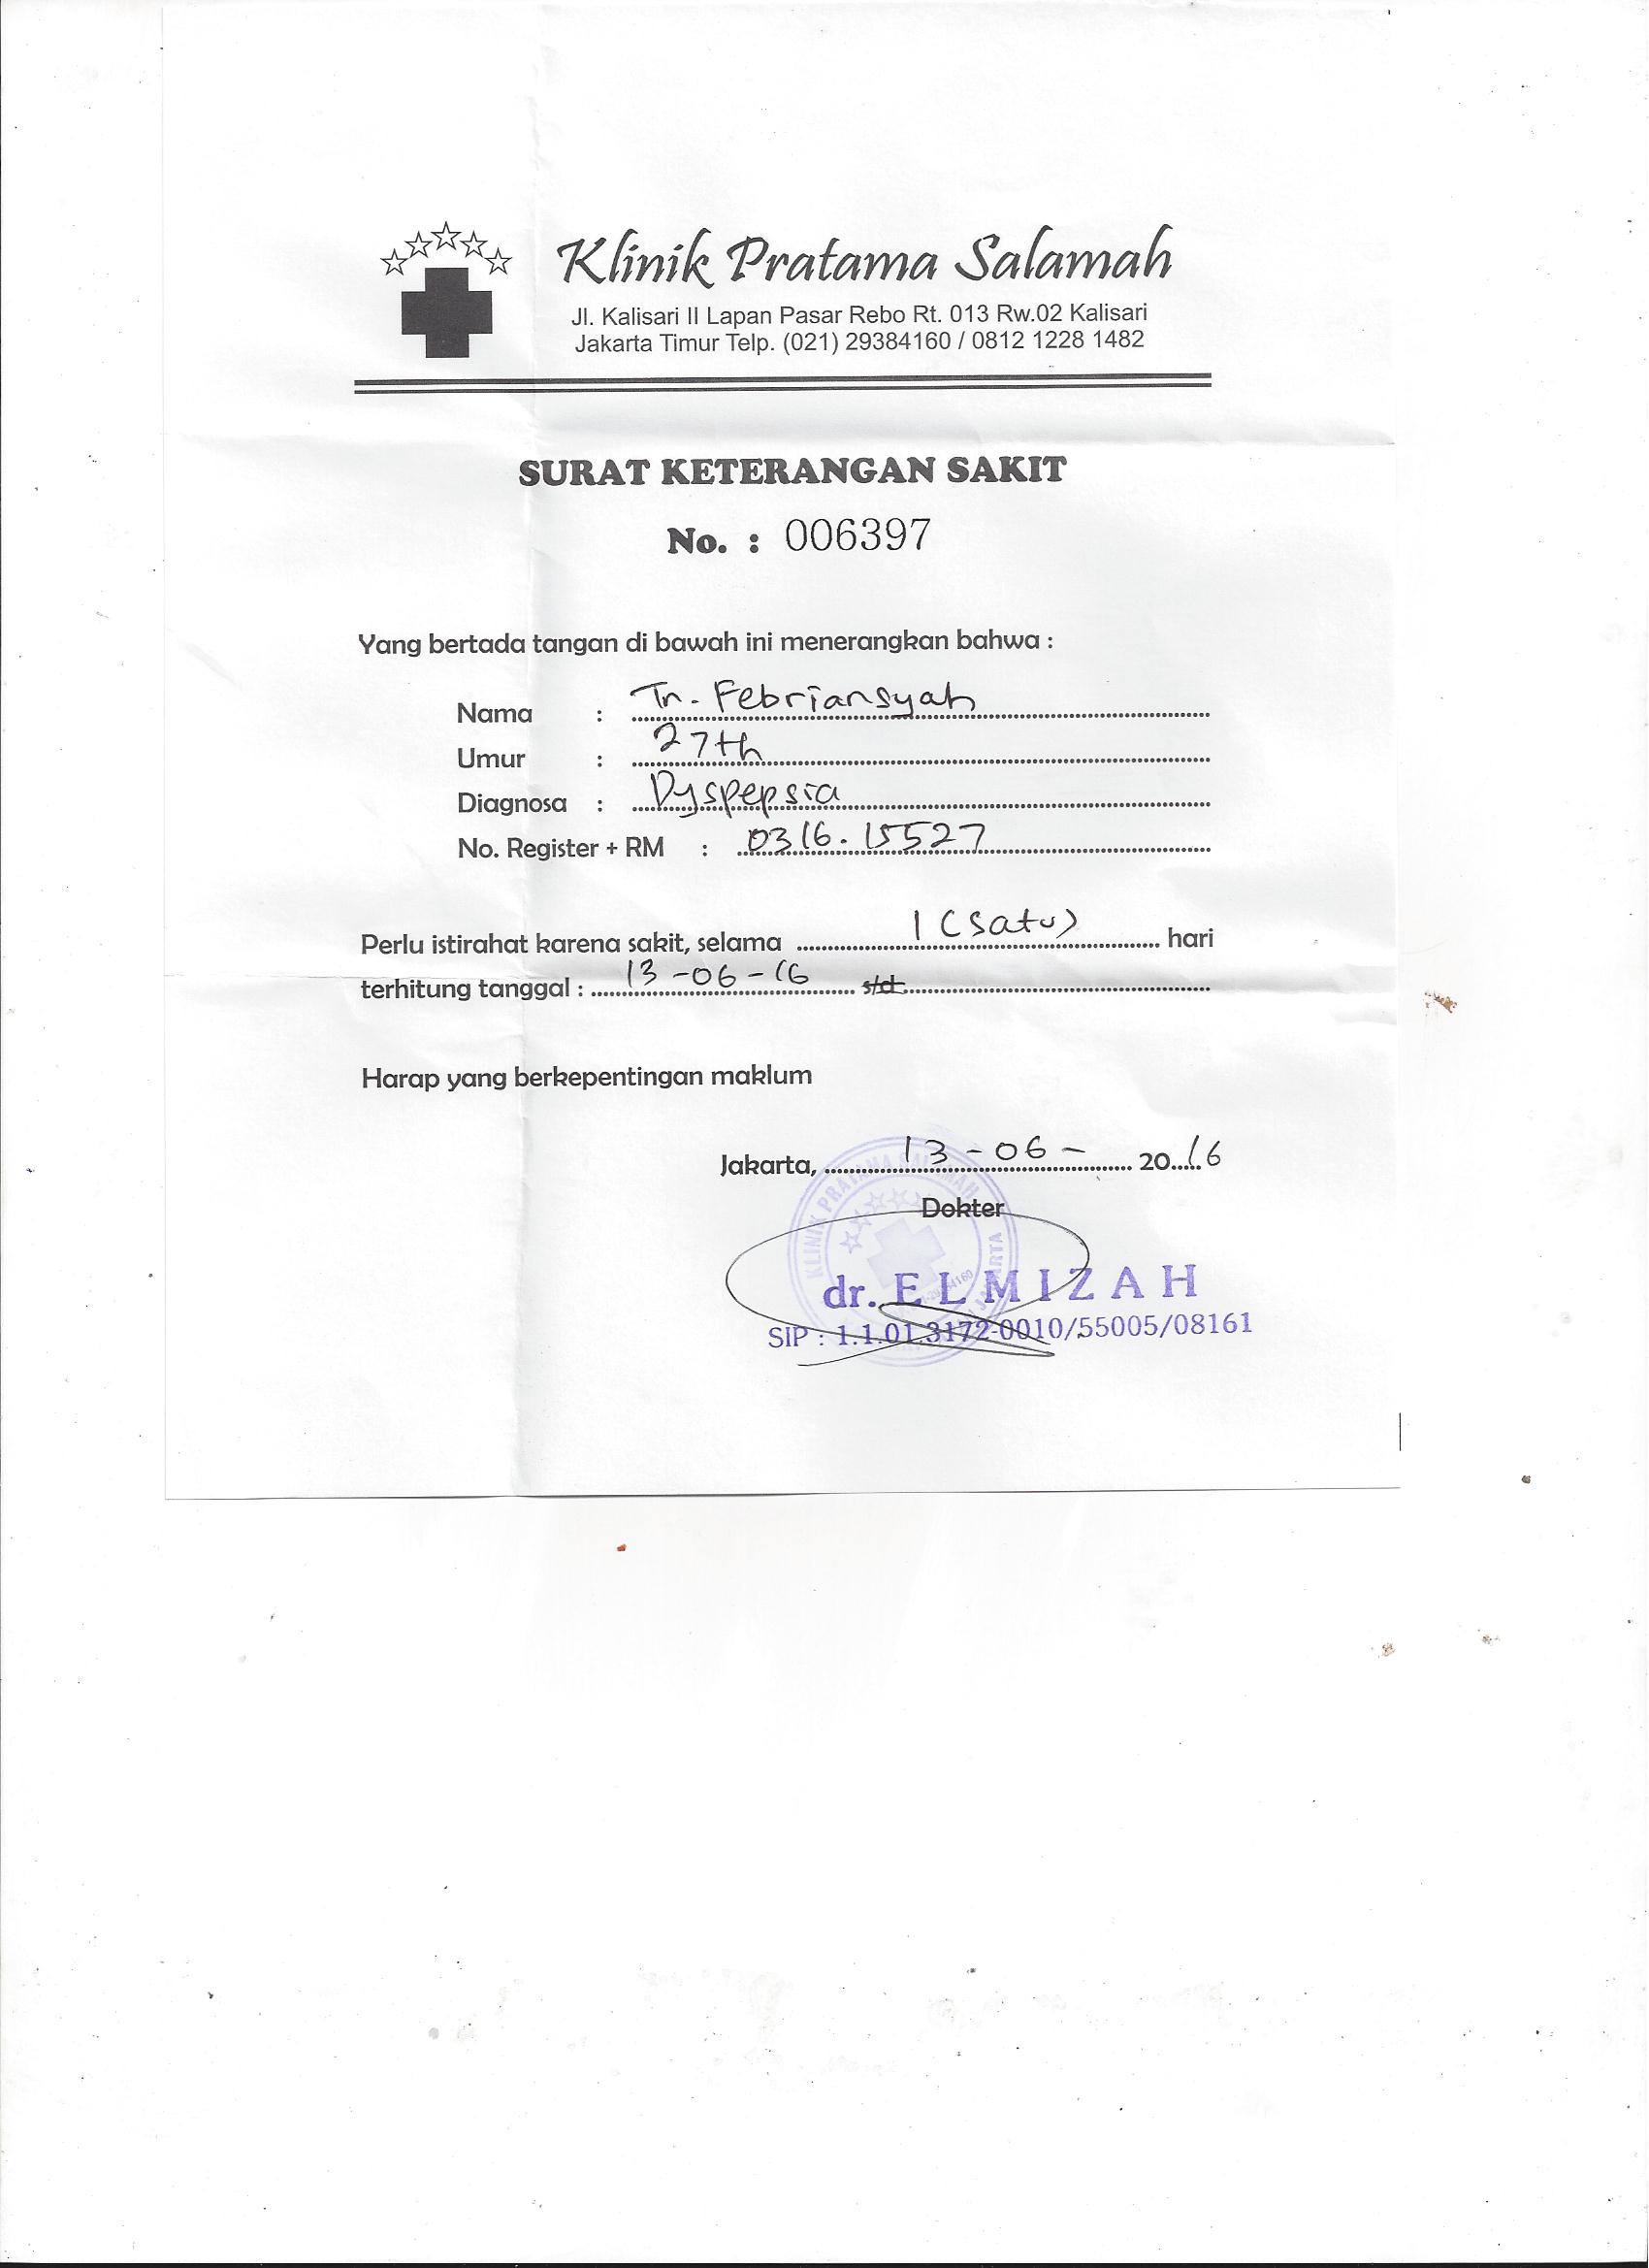 Klinik Pratama Salamah
Jl. Kalisari II Lapan Pasar Rebo Rt. 013 Rw.02 Kalisari
Jakarta Timur Telp. (021) 29384160 / 0812 1228 1482
SURAT KETERANGAN SAKIT
No. : 006397
Yang bertada tangan di bawah ini menerangkan bahwa :
Nama : Tn. Febriansyah
Umur : 27th
Diagnosa : Dyspepsia
No. Register + RM : 0316.15527
Perlu istirahat karena sakit, selama 1 (Satu) hari
terhitung tanggal : 13-06-16 s/d
Harap yang berkepentingan maklum
Jakarta, 13-06- 2016
Dokter
KLINIK PRATAMA SALAMAH
dr. ELMIZAH
SIP : 1.1.01.3172-0010/55005/08161